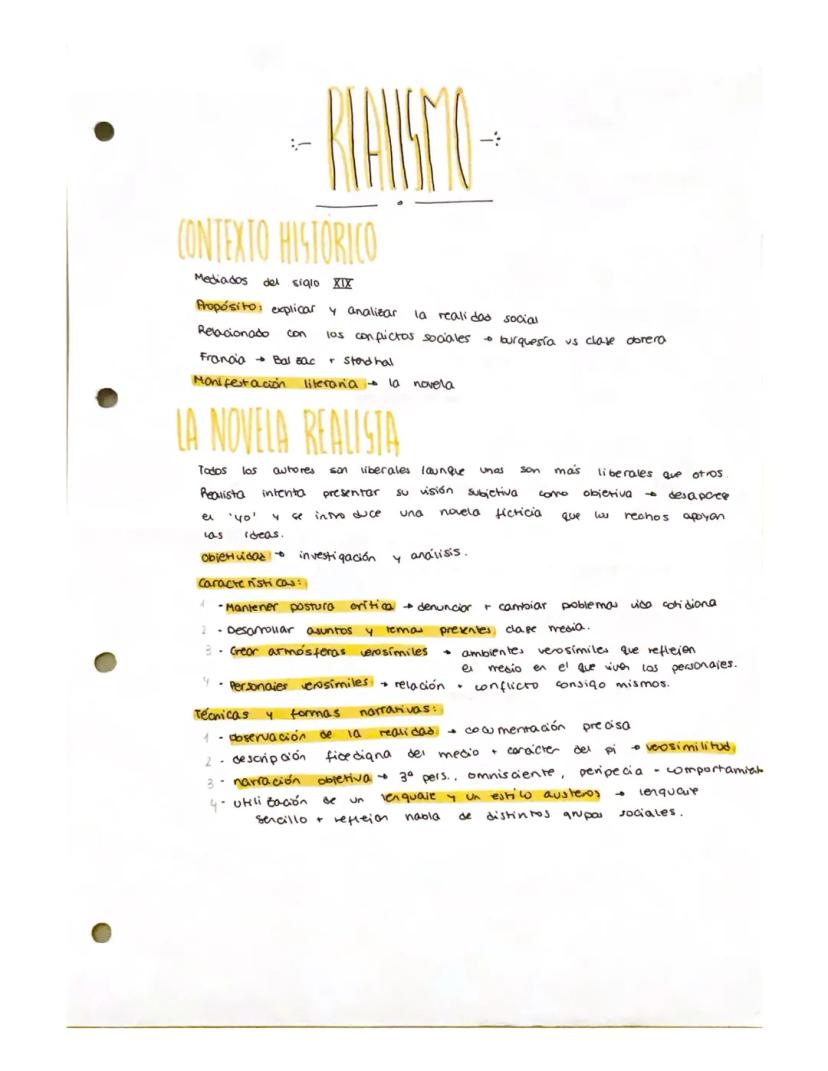 REALISMO
CONTEXTO HISTÓRICO
Mediados del siglo XIX
Propósito: explicar y analizar la realidad social
Relacionado con los conflictos sociales → burguesía vs clase obrera
Francia → Balzac + Stendhal
Manifestación literaria → la novela
LA NOVELA REALISTA
Todos los autores son liberales (aunque unos son más liberales que otros.
Realista intenta presentar su visión subjetiva como objetiva → desaparece
el 'yo' y se introduce una novela ficticia que los hechos apoyan
las ideas.
Objetividad → investigación y análisis.
Características:
1 - Mantener postura crítica → denunciar + cambiar problemas vida cotidiana
2 - Desarrollar asuntos y temas presentes, clase media.
3 - Crear atmósferas verosímiles → ambientes verosímiles que reflejen
el medio en el que viven los personajes.
4 - Personajes verosímiles → relación + conflicto consigo mismos.
Técnicas y formas narrativas:
1 - Observación de la realidad → documentación precisa
2 - descripción fidedigna del medio + carácter del pj → verosimilitud
3 - narración objetiva → 3ª pers., omnisciente, peripecia - comportamient
4 - utilización de un lenguaje y un estilo austeros → lenguaje
sencillo + reflejan habla de distintos grupos sociales.